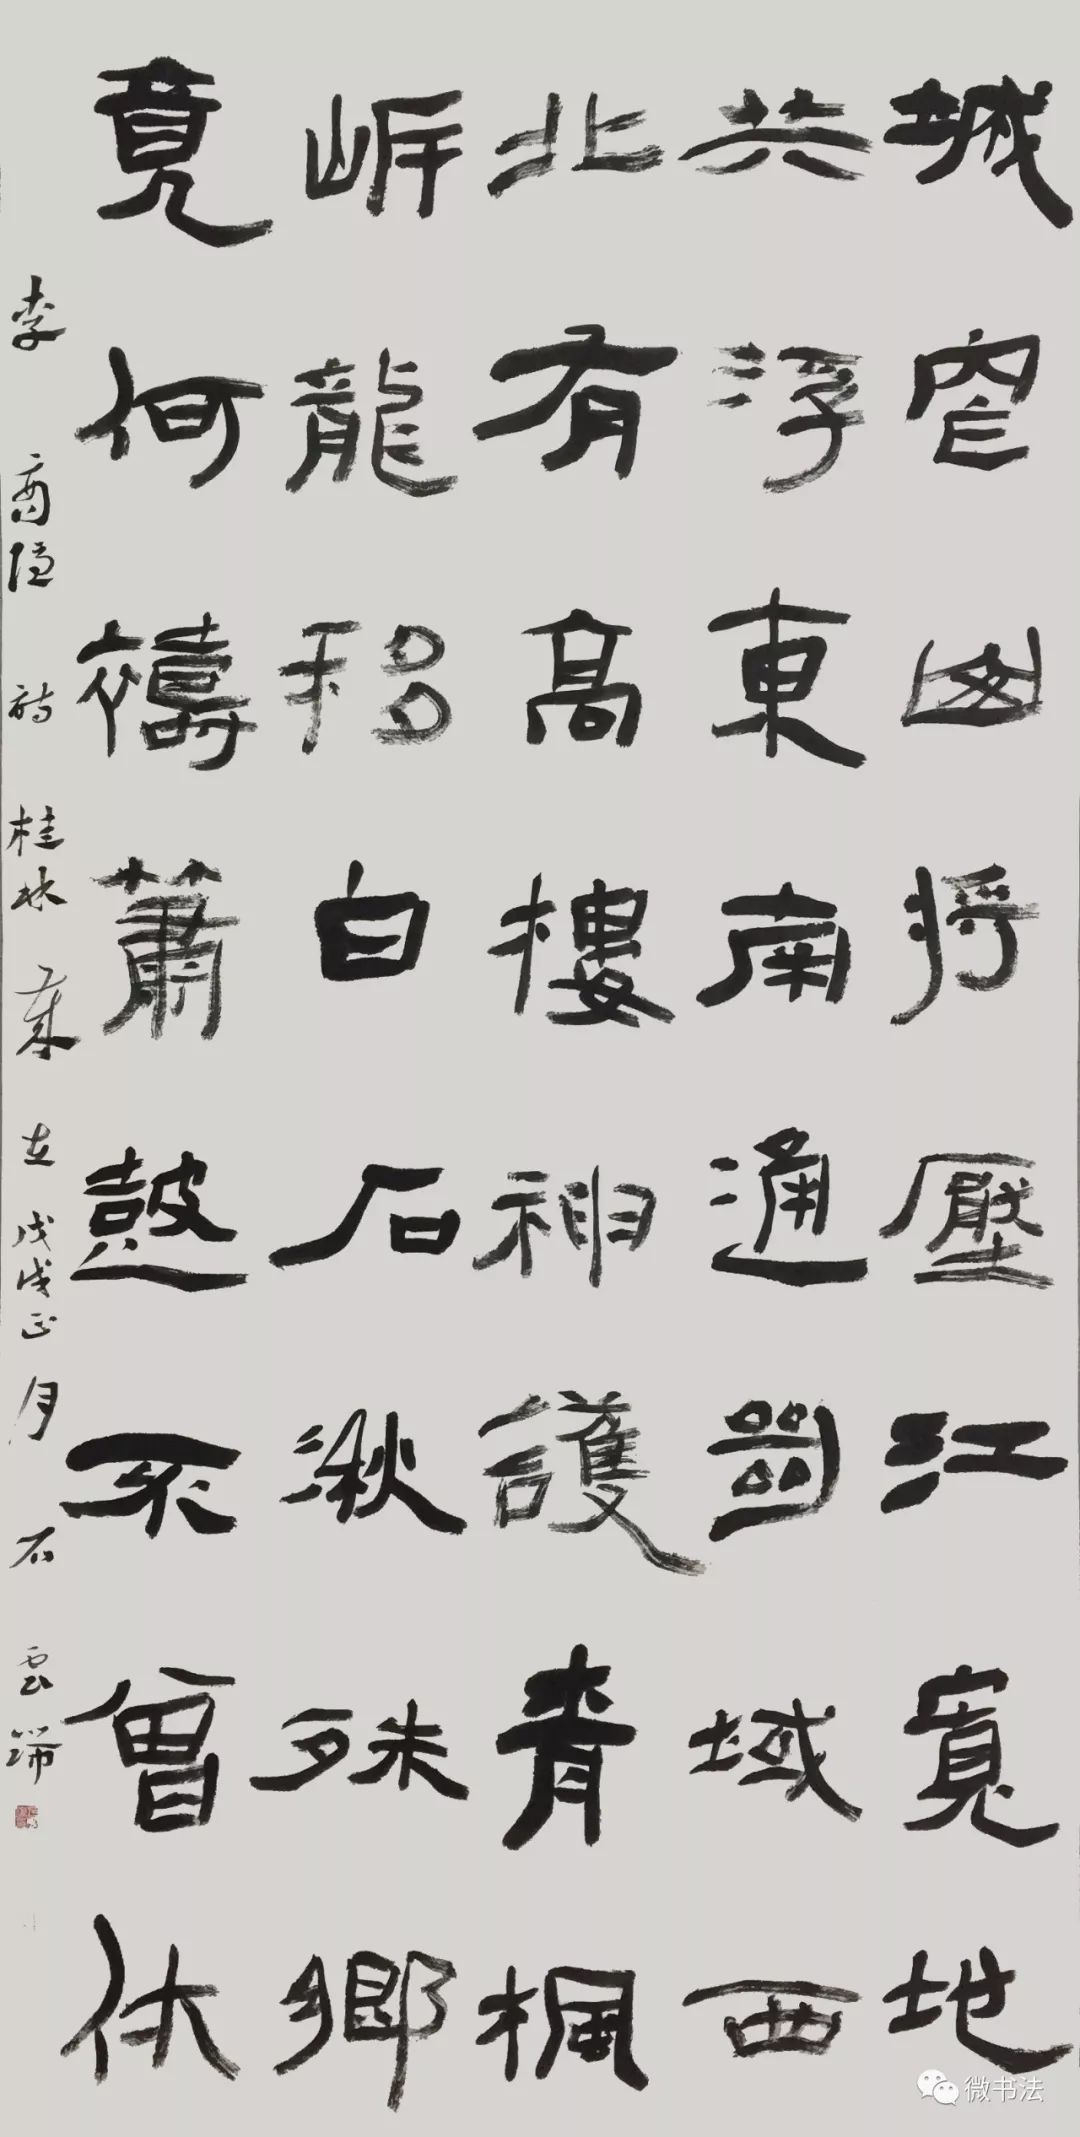 城窄山將壓江寬地
共浮東南通絕域西
北有高樓神護青楓
岸龍移白石湫殊鄉
竟何禱蕭鼓不曾休
李商隱詩桂林歲在戊戌正月石雲瑞
微书法